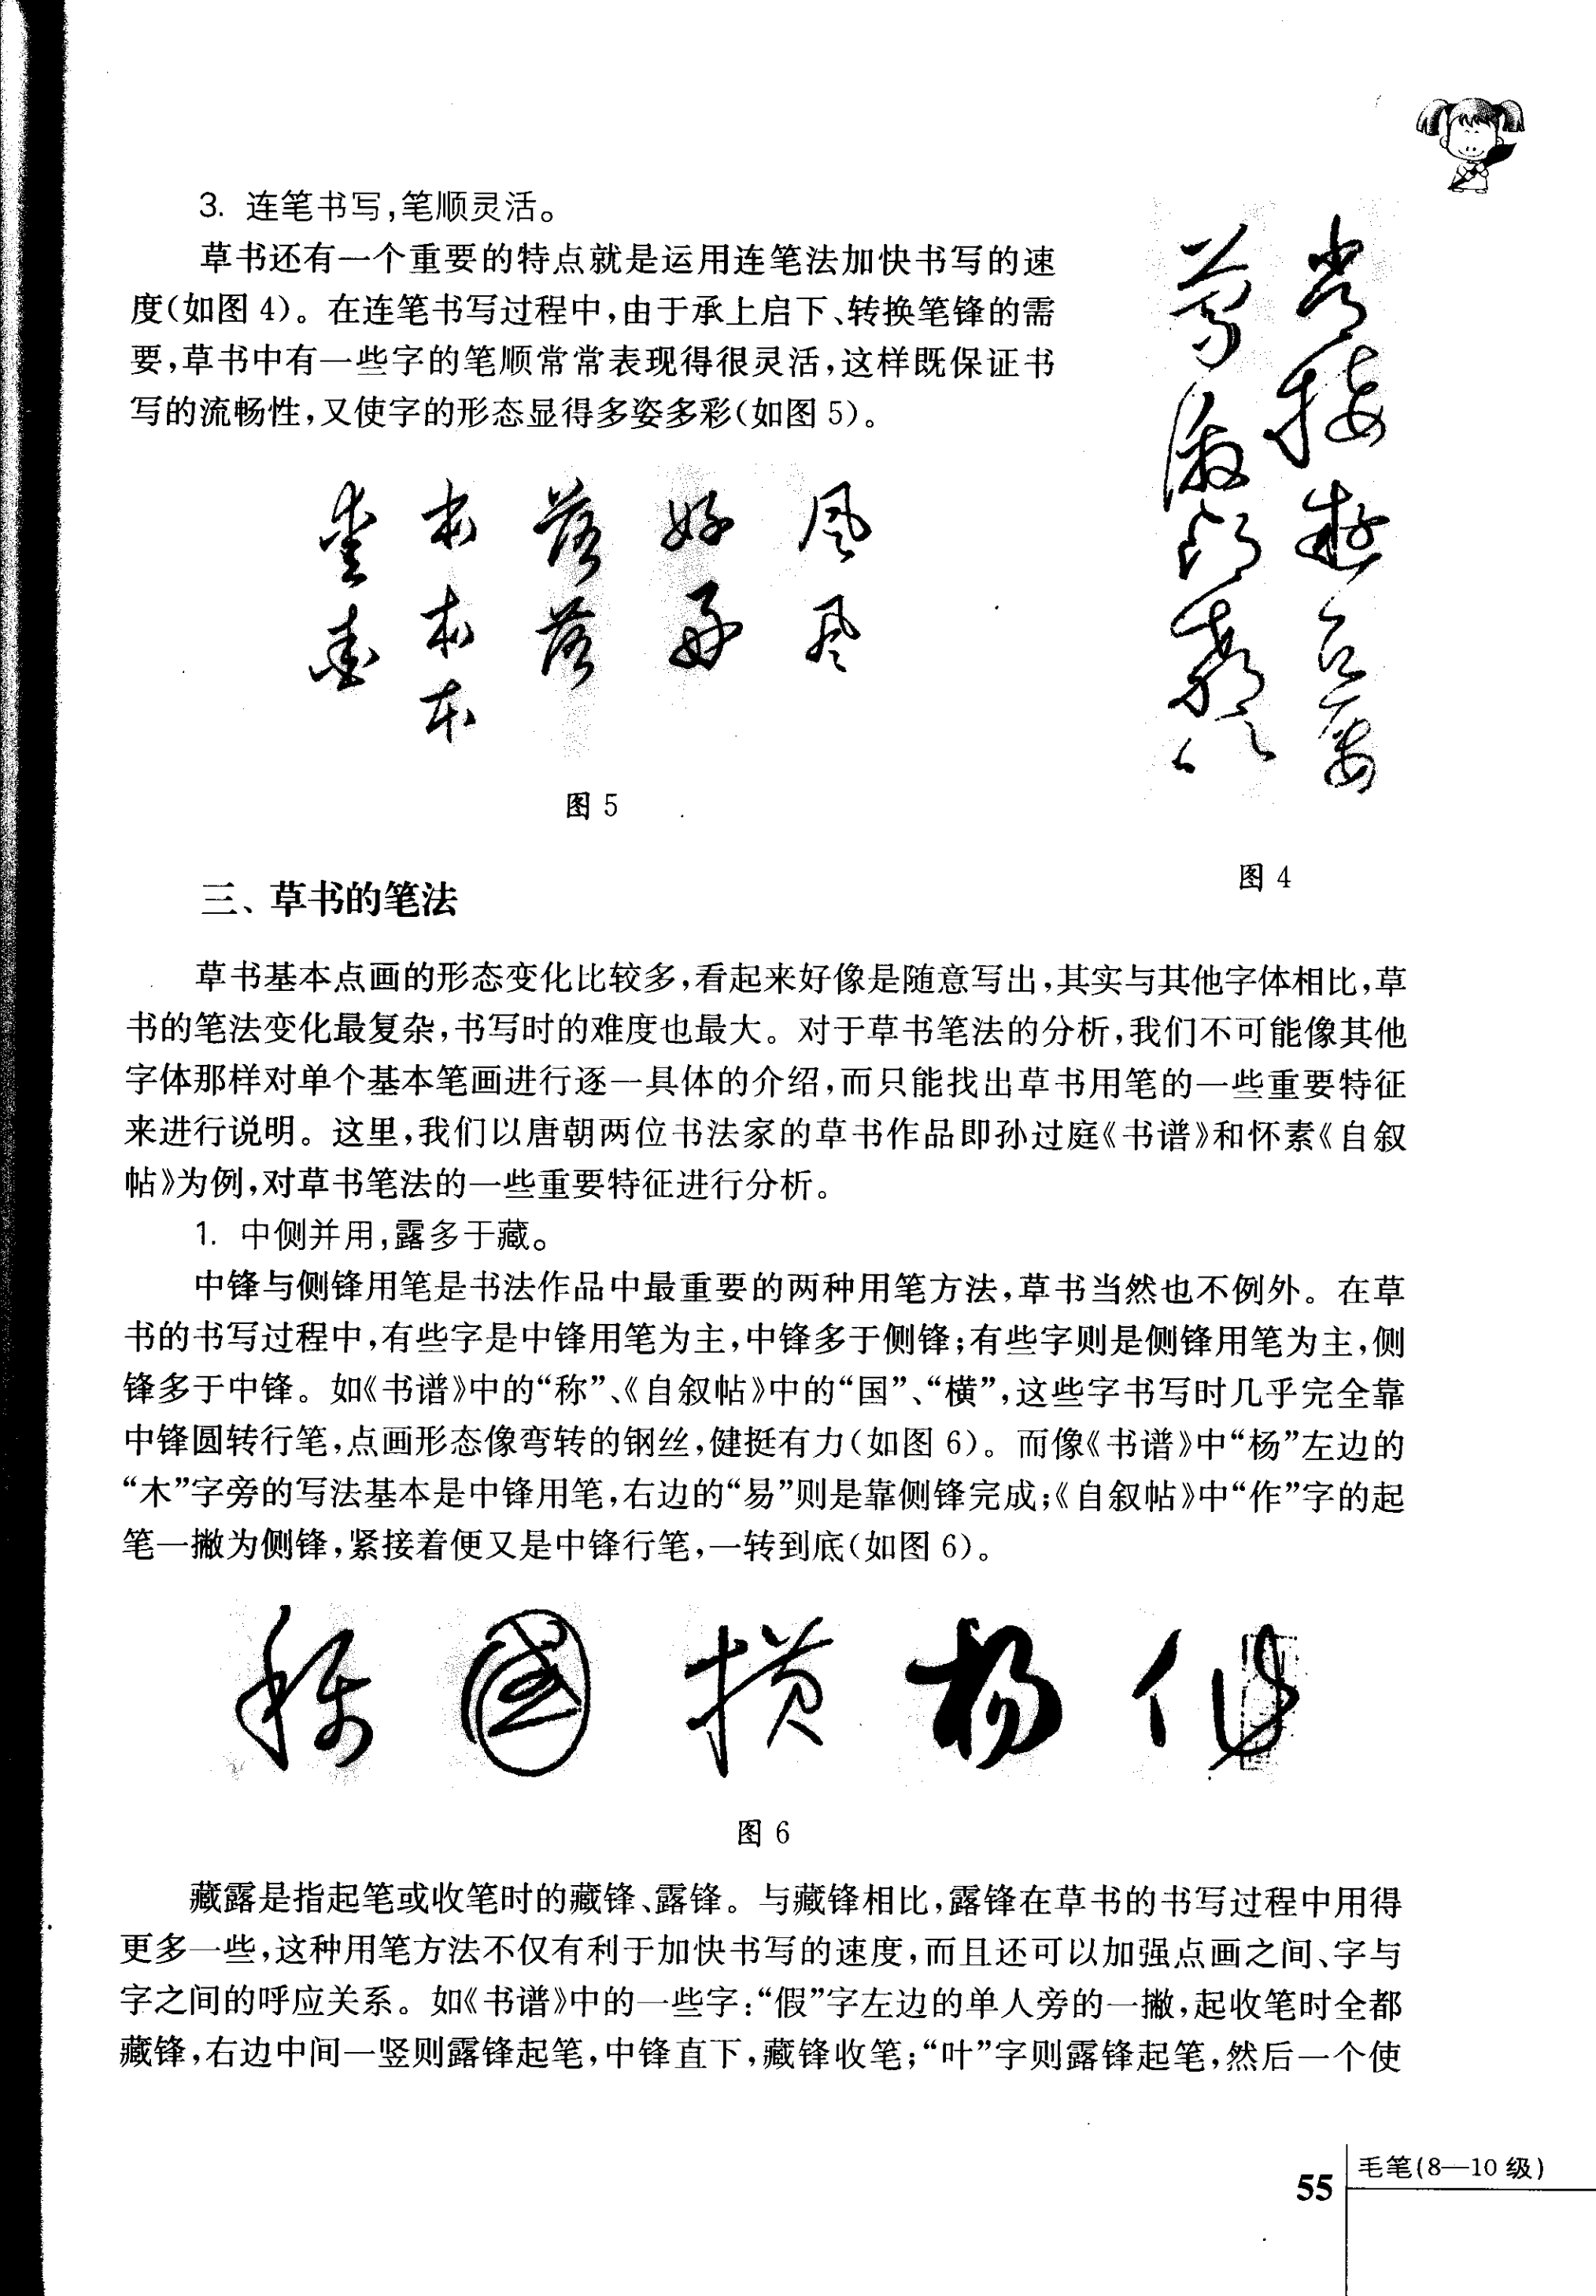 3. 连笔书写,笔顺灵活。
草书还有一个重要的特点就是运用连笔法加快书写的速
度(如图 4)。在连笔书写过程中,由于承上启下、转换笔锋的需
要,草书中有一些字的笔顺常常表现得很灵活,这样既保证书
写的流畅性,又使字的形态显得多姿多彩(如图 5)。
落 好 风
落 好 风
图 5
图 4
三、草书的笔法
草书基本点画的形态变化比较多,看起来好像是随意写出,其实与其他字体相比,草
书的笔法变化最复杂,书写时的难度也最大。对于草书笔法的分析,我们不可能像其他
字体那样对单个基本笔画进行逐一具体的介绍,而只能找出草书用笔的一些重要特征
来进行说明。这里,我们以唐朝两位书法家的草书作品即孙过庭《书谱》和怀素《自叙
帖》为例,对草书笔法的一些重要特征进行分析。
1. 中侧并用,露多于藏。
中锋与侧锋用笔是书法作品中最重要的两种用笔方法,草书当然也不例外。在草
书的书写过程中,有些字是中锋用笔为主,中锋多于侧锋;有些字则是侧锋用笔为主,侧
锋多于中锋。如《书谱》中的“称”、《自叙帖》中的“国”、“横”,这些字书写时几乎完全靠
中锋圆转行笔,点画形态像弯转的钢丝,健挺有力(如图 6)。而像《书谱》中“杨”左边的
“木”字旁的写法基本是中锋用笔,右边的“易”则是靠侧锋完成;《自叙帖》中“作”字的起
笔一撇为侧锋,紧接着便又是中锋行笔,一转到底(如图 6)。
称 國 横 杨 作
图 6
藏露是指起笔或收笔时的藏锋、露锋。与藏锋相比,露锋在草书的书写过程中用得
更多一些,这种用笔方法不仅有利于加快书写的速度,而且还可以加强点画之间、字与
字之间的呼应关系。如《书谱》中的一些字:“假”字左边的单人旁的一撇,起收笔时全都
藏锋,右边中间一竖则露锋起笔,中锋直下,藏锋收笔;“叶”字则露锋起笔,然后一个使
55
毛笔(8—10 级)